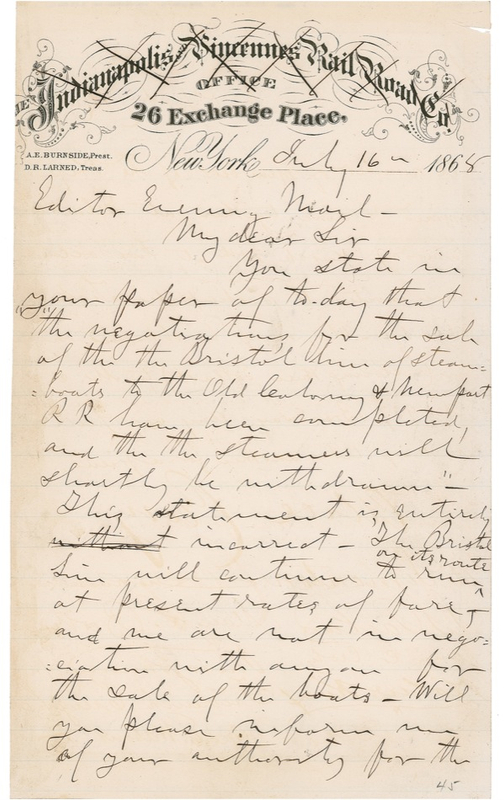 The Indianapolis and Vincennes Rail Road Co.
OFFICE
26 Exchange Place.
A. E. BURNSIDE, Prest.
D. R. LARNED, Treas.
New York July 16th 1868
Editor Evening Mail -
My dear Sir
You state in
your paper of to-day that
"the negotiations for the sale
of the the Bristol line of steam-
=boats to the Old Colony & Newport
R R have been completed,
and the the steamers will
shortly be withdrawn" -
This statement is entirely
without incorrect - The Bristol
Line will continue to run on its route
at present rates of fare,
and we are not in nego-
=ciation with anyone for
the sale of the boats - Will
you please inform me
of your authority for the
45